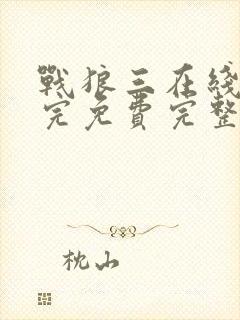 戰狼三在綫
完免費完整
枕山